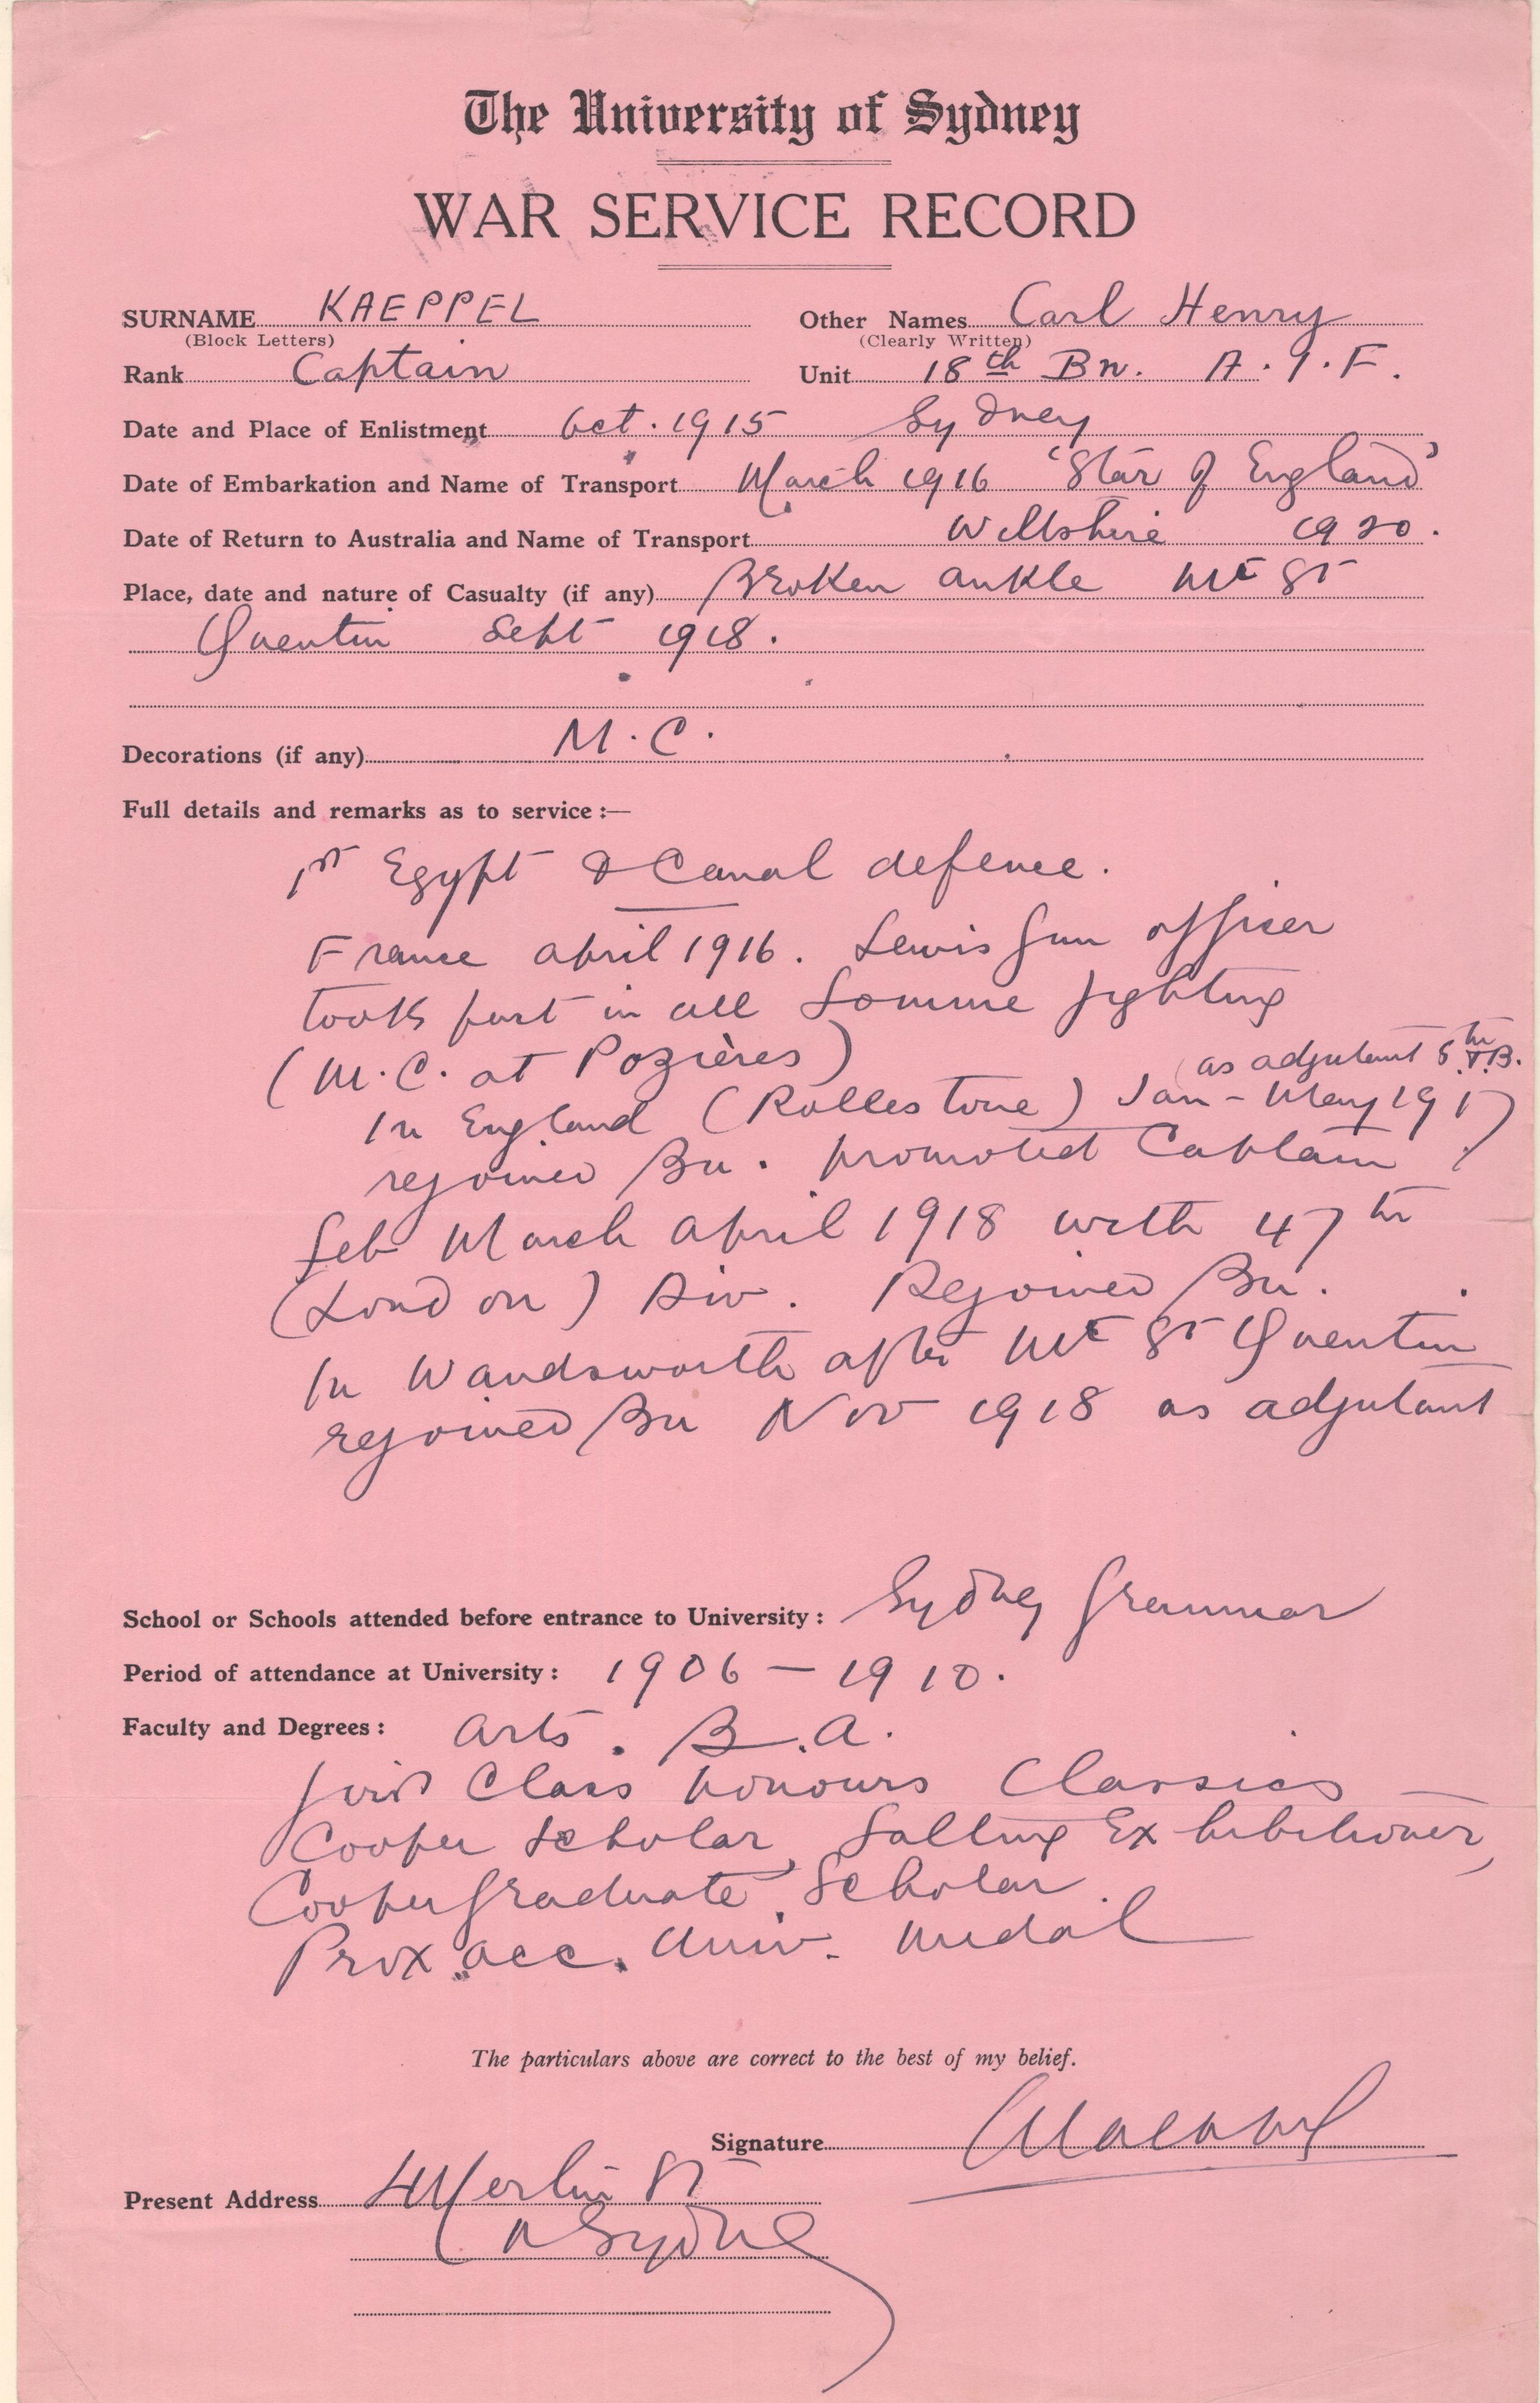 The University of Sydney
WAR SERVICE RECORD
SURNAME KAEPPEL Other Names Carl Henry
(Block Letters) (Clearly Written)
Rank Captain Unit 18th Bn. A.I.F.
Date and Place of Enlistment Oct. 1915 Sydney
Date of Embarkation and Name of Transport March 1916 'Star of England'
Date of Return to Australia and Name of Transport Wiltshire 1920.
Place, date and nature of Casualty (if any) Broken ankle Mt St
Quentin Sept 1918.
Decorations (if any) M.C.
Full details and remarks as to service :—
1st Egypt & Canal defence.
France april 1916. Lewis Gun officer
took part in all Somme fighting
(M.C. at Pozières)
(as adjutant 5th T.B.
In England (Rollestone) Jan - May 1917)
rejoined Bn. promoted Captain
Feb March april 1918 with 47th
(London) Div. Rejoined Bn.
In Wandsworth after Mt St Quentin
rejoined Bn Nov 1918 as adjutant
School or Schools attended before entrance to University : Sydney Grammar
Period of attendance at University : 1906 – 1910.
Faculty and Degrees : Arts. B.A.
First Class honours Classics
Cooper Scholar, Salting Exhibitioner,
Cooper Graduate Scholar.
Prox. acc. Univ. Medal
The particulars above are correct to the best of my belief.
Signature
Present Address 4 Merlin St
N Sydney